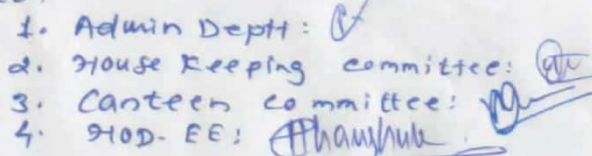 1. Admin Deptt:
2. House Keeping committee:
3. Canteen committee:
4. HOD- EE: